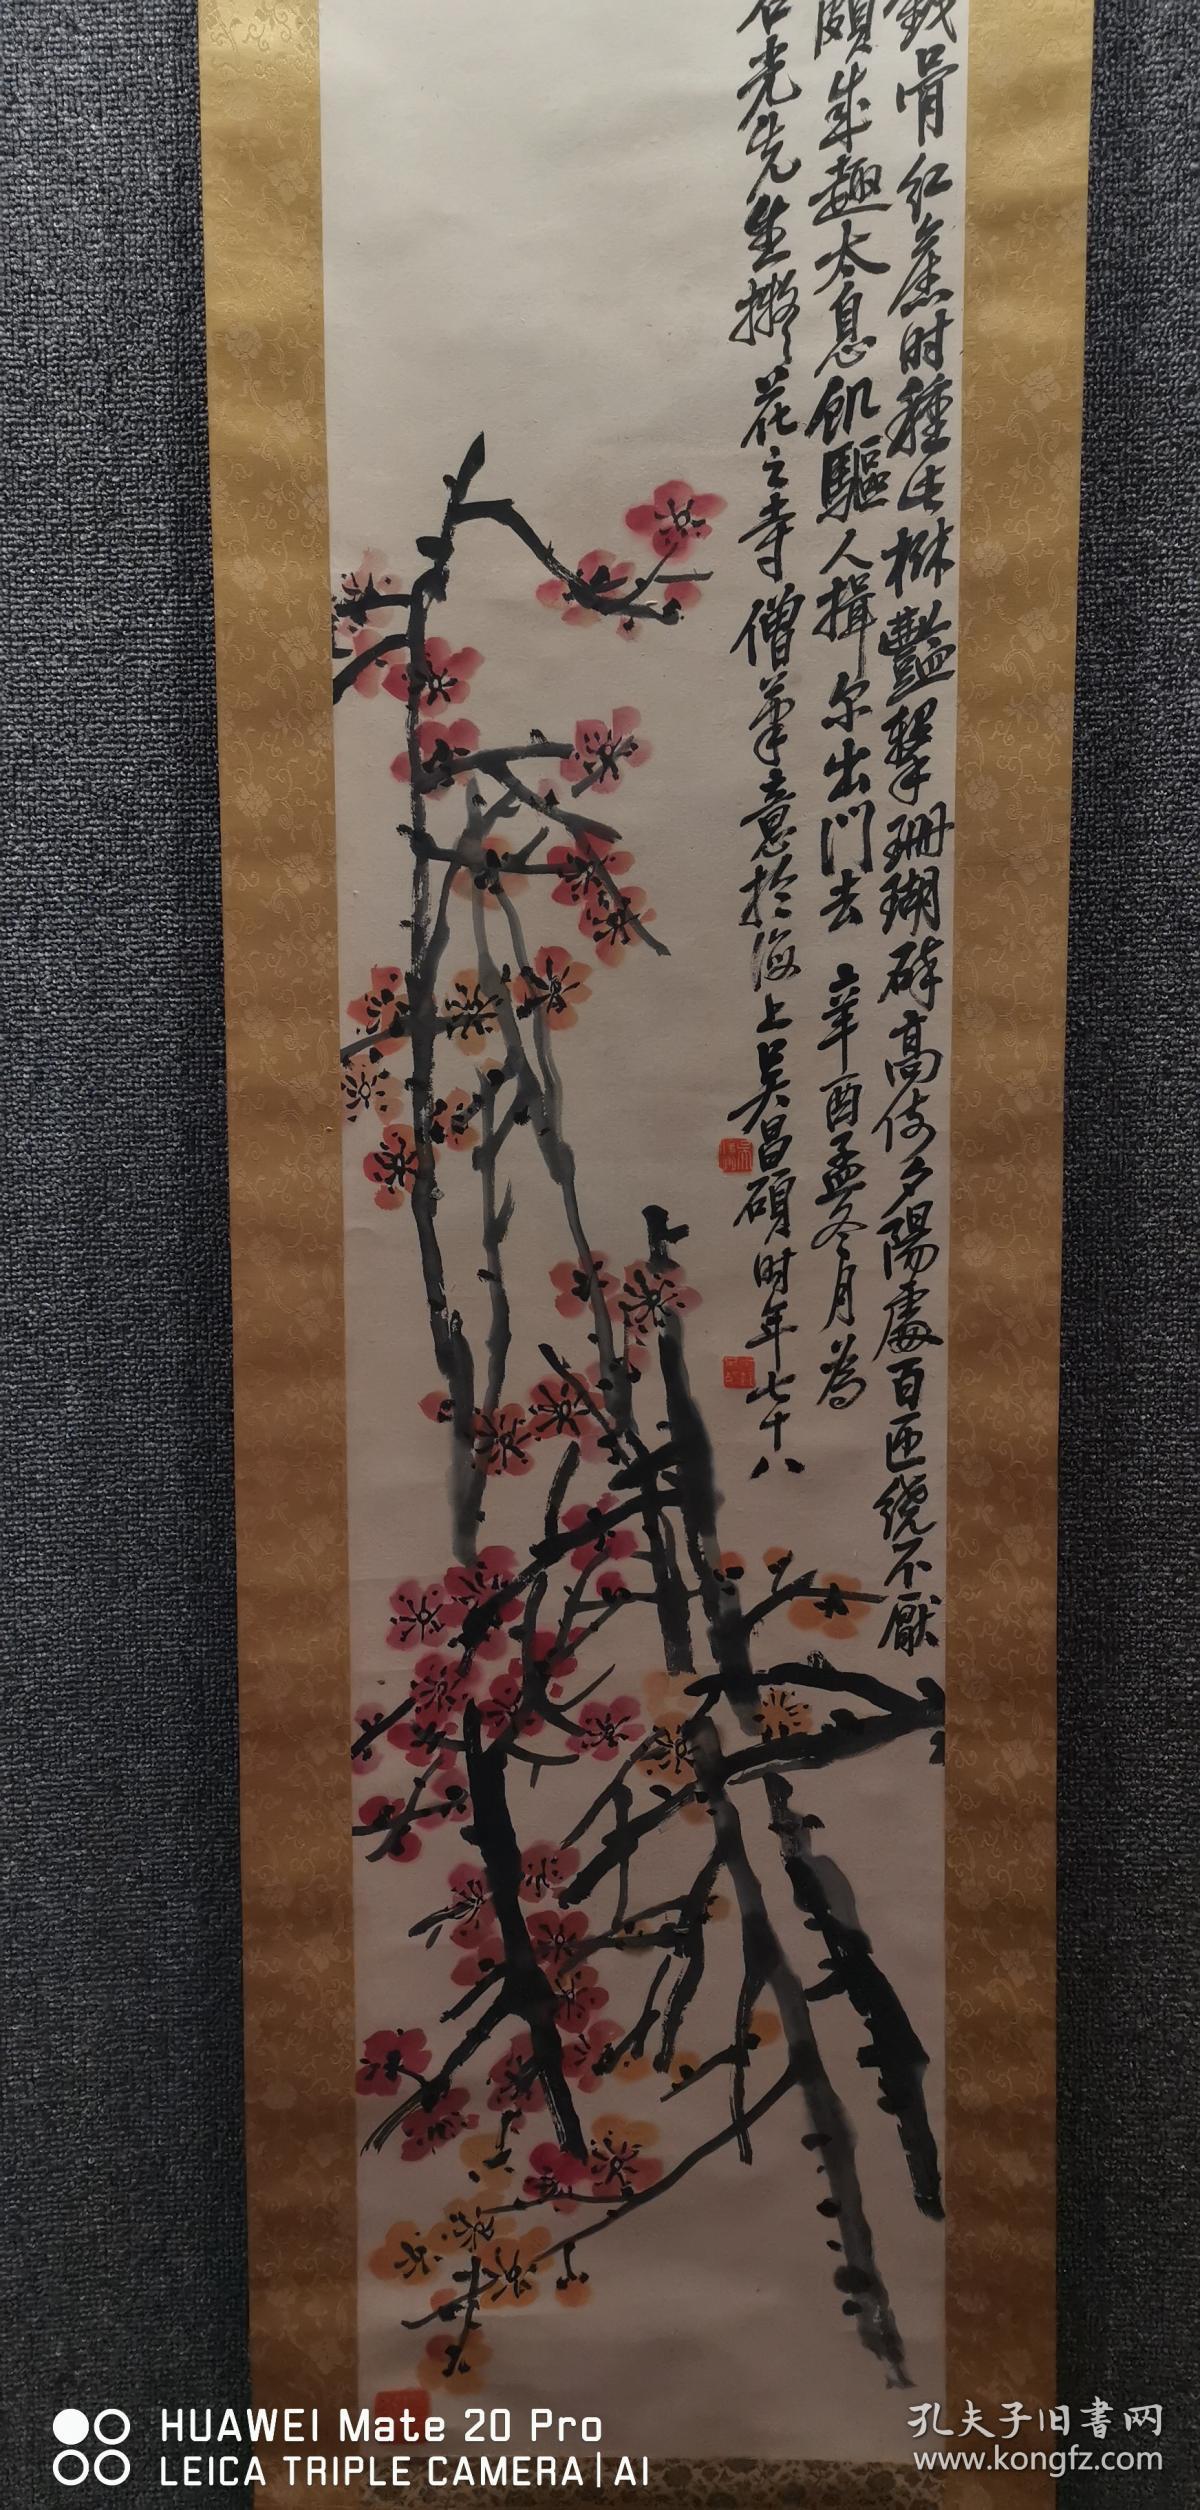 鐵骨紅蕉时種出梅豔擊珊瑚碎高倚夕陽處百匝繞不厭
頗生趣太息飢驅人揖尔出门去 辛酉孟冬月為
石光先生擬花之寺僧筆意於海上吴昌碩时年七十八
HUAWEI Mate 20 Pro
LEICA TRIPLE CAMERA | AI
孔夫子旧書网
www.kongfz.com